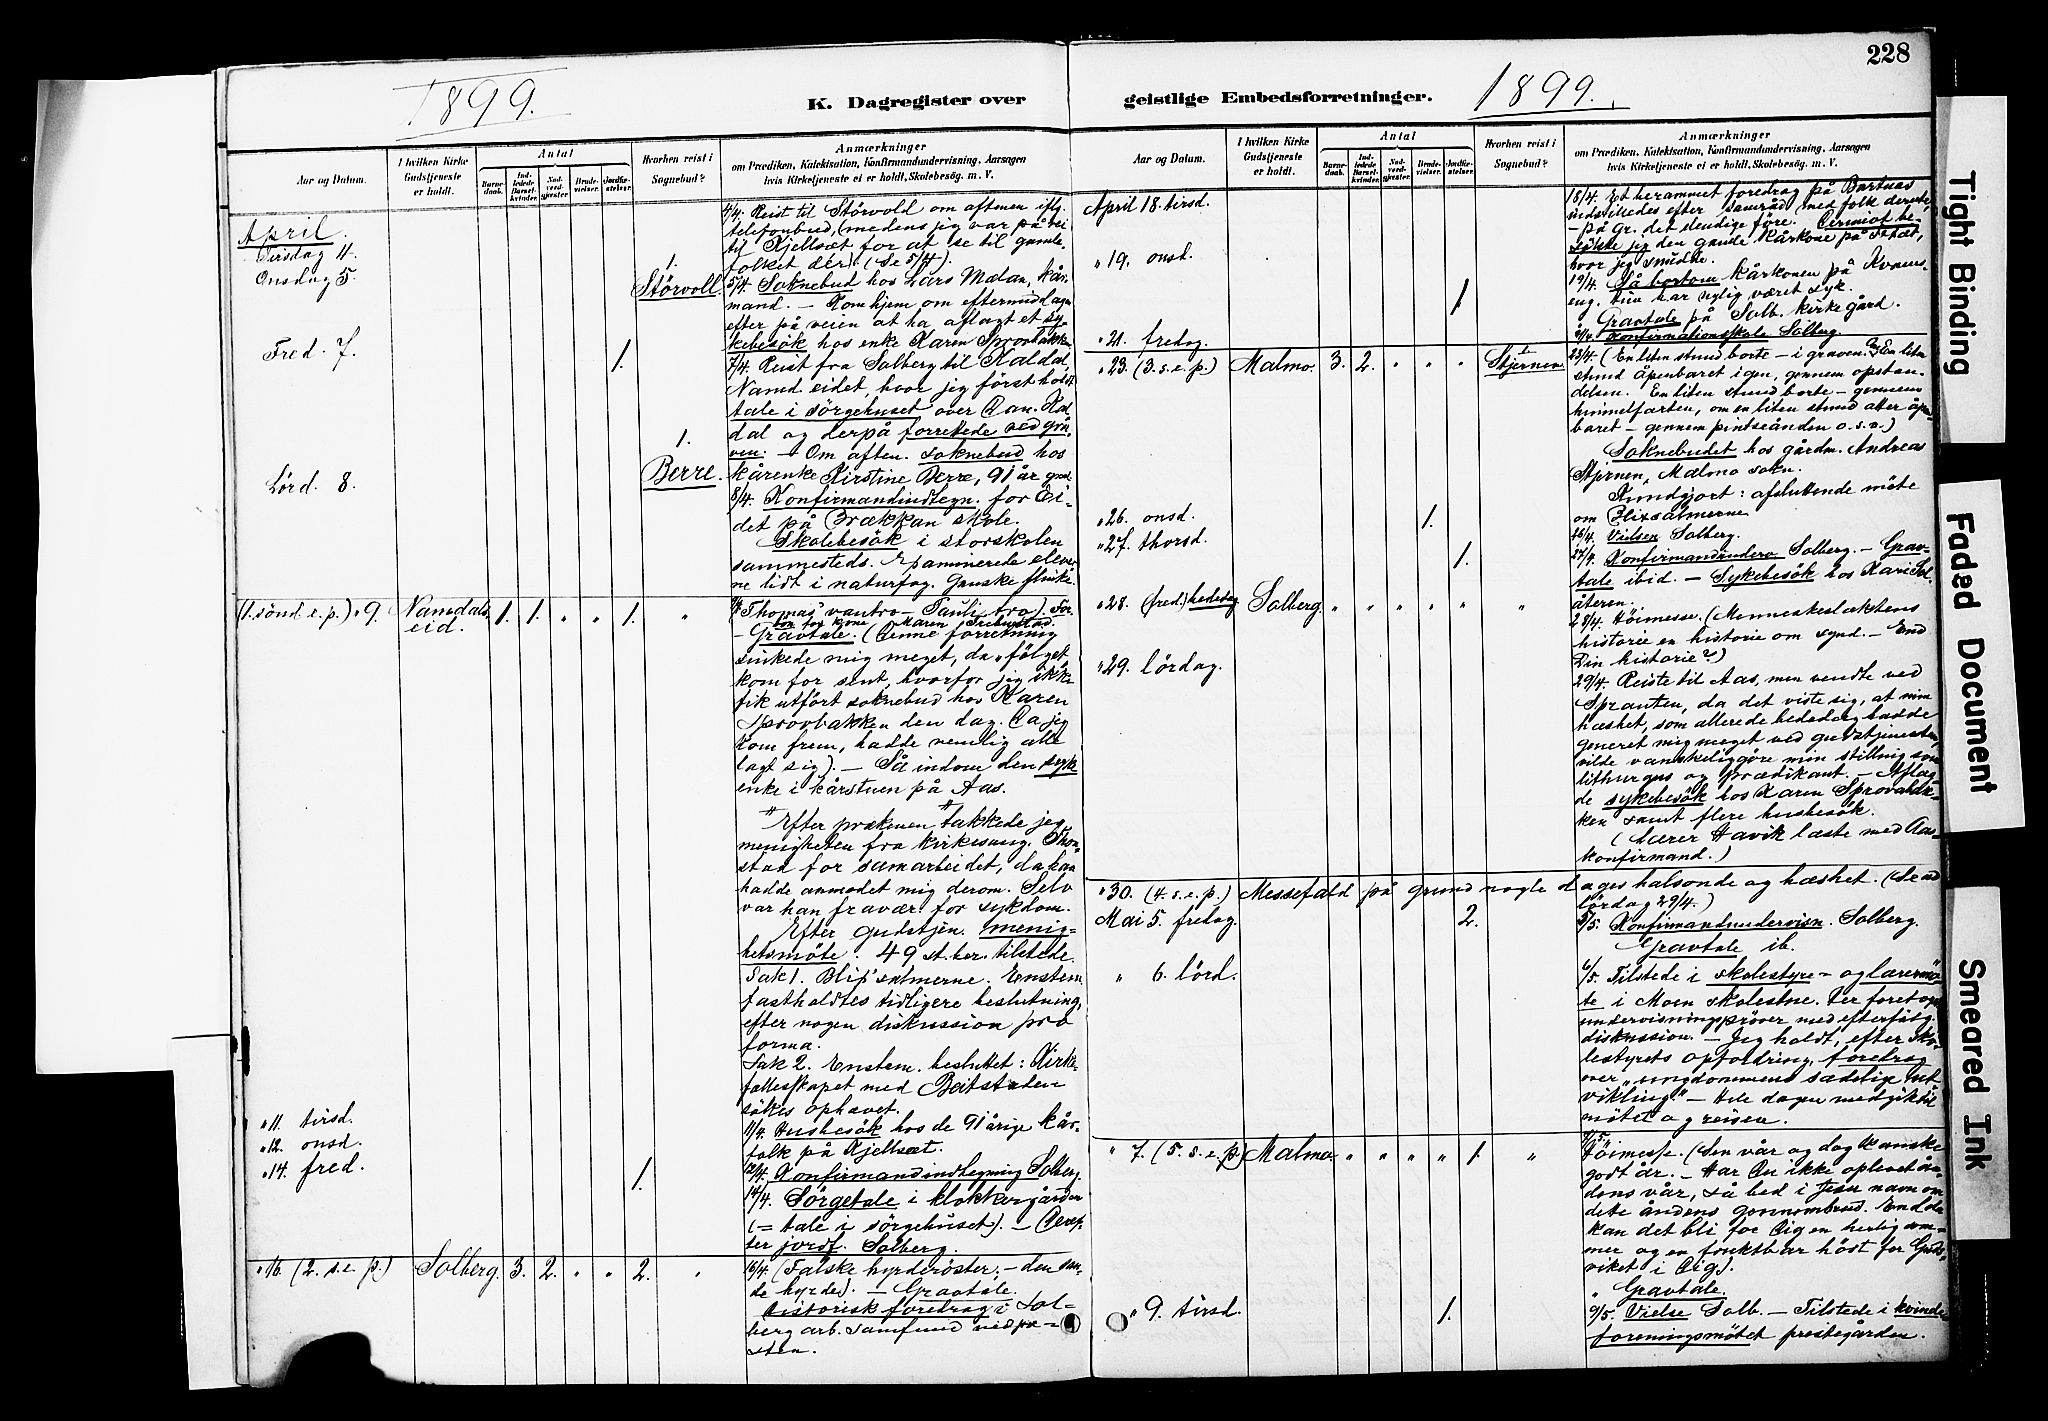 228
1899.
K. Dagregister over
geistlige Embedsforretninger.
1899.
Aar og Datum.
I hvilken Kirke Gudstjeneste er holdt.
Antal
Barnedaab.
Indledede Barselkvinder.
Nadverdgjester.
Brudevielser.
Jordfæstelser.
Hvorhen reist i Sognebud?
Anmærkninger
om Prædiken, Katekisation, Konfirmandundervisning, Aarsagen
hvis Kirketjeneste ei er holdt, Skolebesøg. m. V.
April.
Tirsdag 4.
4/4. Reist til Störvold om aftenen iflg.
telefonbud, (medens jeg var på vei
til Kjelsæt for at se til gamle-
folket dér). (Se 5/4).
Onsdag 5.
1.
Störvoll.
5/4. Soknebud hos Lars Mælan, kår-
mand. – Kom hjem om eftermiddagen
efter på veien at ha aflagt et sy-
kebesök hos enke Karen Sprovbakken
Fred. 7.
1.
7/4. Reist fra Solberg til Kaldal,
Namd.eidet, hvor jeg först holdt
tale i sörgehuset over Dan. Kal-
dal og derpå forrettede ved gra-
ven. – Om aften. soknebud hos
1.
Berre.
kårenke Kirstine Berre, 91 år gml.
Lörd. 8.
8/4. Konfirmandindtegn. for Ei-
det på Brækkan skole.
Skolebesök i storskolen
sammesteds. Examinerede elever-
ne lidt i naturfag. Ganske flinke.
(1. sönd. e. p.) " 9.
Namdals-
eid.
1. 1. " " 1. "
Thomas' vantro – Pauli tro).
– Gravtale. (Denne forretning
sinkede mig meget, da fölget
kom for sent, hvorfor jeg ikke
fik utfört soknebud hos Karen
Sprovbakken den dag. Da jeg
kom frem, hadde nemlig alle
lagt sig). – Så indom den syk
enke i kårstuen på Aas.
Efter prækenen takkede jeg
menigheten fra kirkesang. Thon-
stad for samarbeidet, da han
hadde anmodet mig derom. Selv
var han fravær. for sykdom.
Efter gudstjen. menig-
hetsmöte. 49 st.ber. tilstede.
Sak 1. Blix' salmerne. Enstem.
fastholdtes tidligere beslutning,
efter nogen diskussion pro
forma.
Sak 2. Enstem. besluttet: Kirke-
fællesskapet med Beitstaden
sökes ophævet.
" 11. tirsd.
11/4. Husbesök hos de 91 årige kår-
folk på Kjelsæt.
" 12. onsd.
12/4. Konfirmandindtegning Solberg.
" 14. fred.
1.
14/4. Sörgetale i klokkergården
(= tale i sörgehuset). – Deref-
ter jordf. Solberg.
" 16 (2. s. e. p.)
Solberg.
3. 2. " " 2. "
16/4. (Falske hyrderöster. – den san-
de hyrde). – Gravtale.
Historisk foredrag i Sol-
berg arb. samfund ved præ-
sten.
Aar og Datum.
I hvilken Kirke Gudstjeneste er holdt.
Antal
Barnedaab.
Indledede Barselkvinder.
Nadverdgjester.
Brudevielser.
Jordfæstelser.
Hvorhen reist i Sognebud?
Anmærkninger
om Prædiken, Katekisation, Konfirmandundervisning, Aarsagen
hvis Kirketjeneste ei er holdt, Skolebesøg. m. V.
April 18. tirsd.
18/4. Et berammet foredrag på Bartnas
indstilledes efter samråd med folk derute,
– på gr. det elendige före. Derimot be-
sökte jeg den gamle kårkone på
hvor jeg
" 19. onsd.
1.
19/4. Så bortom kårkonen på Kvern-
eng. Hun har nylig været syk.
Gravtale på Solb. kirkegård.
" 21. fredag.
21/4. Konfirmationsskole Solberg.
" 23. (3. s. e. p.)
Malmo.
3. 2. " " "
1.
Stjernen.
23/4. (En liten stund borte – i graven. En liten
stund åpenbaret igen, gennem opstan-
delsen. En liten stund borte – gennem
himmelfarten, om en liten stund atter åpen-
baret – gennem pintseånden o. s. v.)
Soknebudet hos gårdm. Andreas
Stjernen, Malmo sokn.
Kundgjort: afsluttende möte
om Blixsalmerne.
" 26. onsd.
1.
26/4. Vielsen Solberg.
" 27. thorsd.
1.
27/4. Konfirmandunderv. Solberg. – Grav-
tale ibid. – Sykebesök hos Kari Sol-
återen.
" 28. (fred.) bededag
Solberg.
" " " " " "
28/4. Höimesse. (Menneskeslektens
historie en historie om synd. – End
Din historie?)
" 29. lördag.
29/4. Reiste til Aas, men vendte ved
Spranten, da det viste sig, at min
hæshet, som allerede bededag hadde
generet mig meget ved gudstjenesten,
vilde vanskeliggöre min stilling som
lithurgus og prædikant. – Aflag-
de sykebesök hos Karen Sprovabak-
ken samt flere husbesök.
(Lærer Havik læste med Aas-
konfirmand.)
" 30. (4. s. e. p.)
Messefald på grund nogle dages halsonde og hæshet. (Se ved
lördag 29/4.)
Mai 5. fredag.
2.
5/5. Konfirmandundervisn. Solberg.
Gravtale ib.
" 6. lörd.
6/5. Tilstede i skolestyre- og lærermö-
te i Moen skolestue. Der foretoges
undervisningspröver med efterfölg.
diskussion. – Jeg holdt, efter sko-
lestyrets opfordring, foredrag
over "ungdommens sædelige ut-
vikling." – Hele dagen medgik til
mötet og reisen.
" 7. (5. s. e. p.)
Malmo.
" " " " 1. "
7/5. Höimesse. (Den vår og dog kanske
godt år. – Har Du ikke oplevet ån-
dens vår, så bed i Jesu navn om
dete åndens gennembrud. Endda
kan det bli for Dig en herlig som-
mer og en fruktbar höst for Guds-
riket i Dig).
" Gravtale.
" 9. tirsd.
1.
9/5. Vielse Solb. – Tilstede i kvinde-
foreningsmötet prestegården.
Tight Binding
Faded Document
Smeared Ink